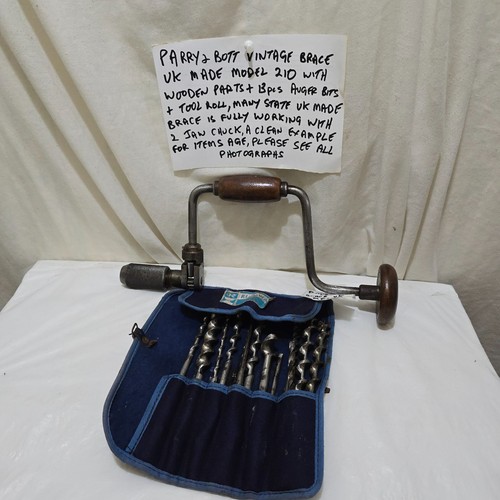 PARRY & BOTT VINTAGE BRACE
UK MADE MODEL 210 WITH
WOODEN PARTS + 13pcs AUGER BITS
+ TOOL ROLL, MANY STATE UK MADE
BRACE IS FULLY WORKING WITH
2 JAW CHUCK, A CLEAN EXAMPLE
FOR ITEMS AGE, PLEASE SEE ALL
PHOTOGRAPHS